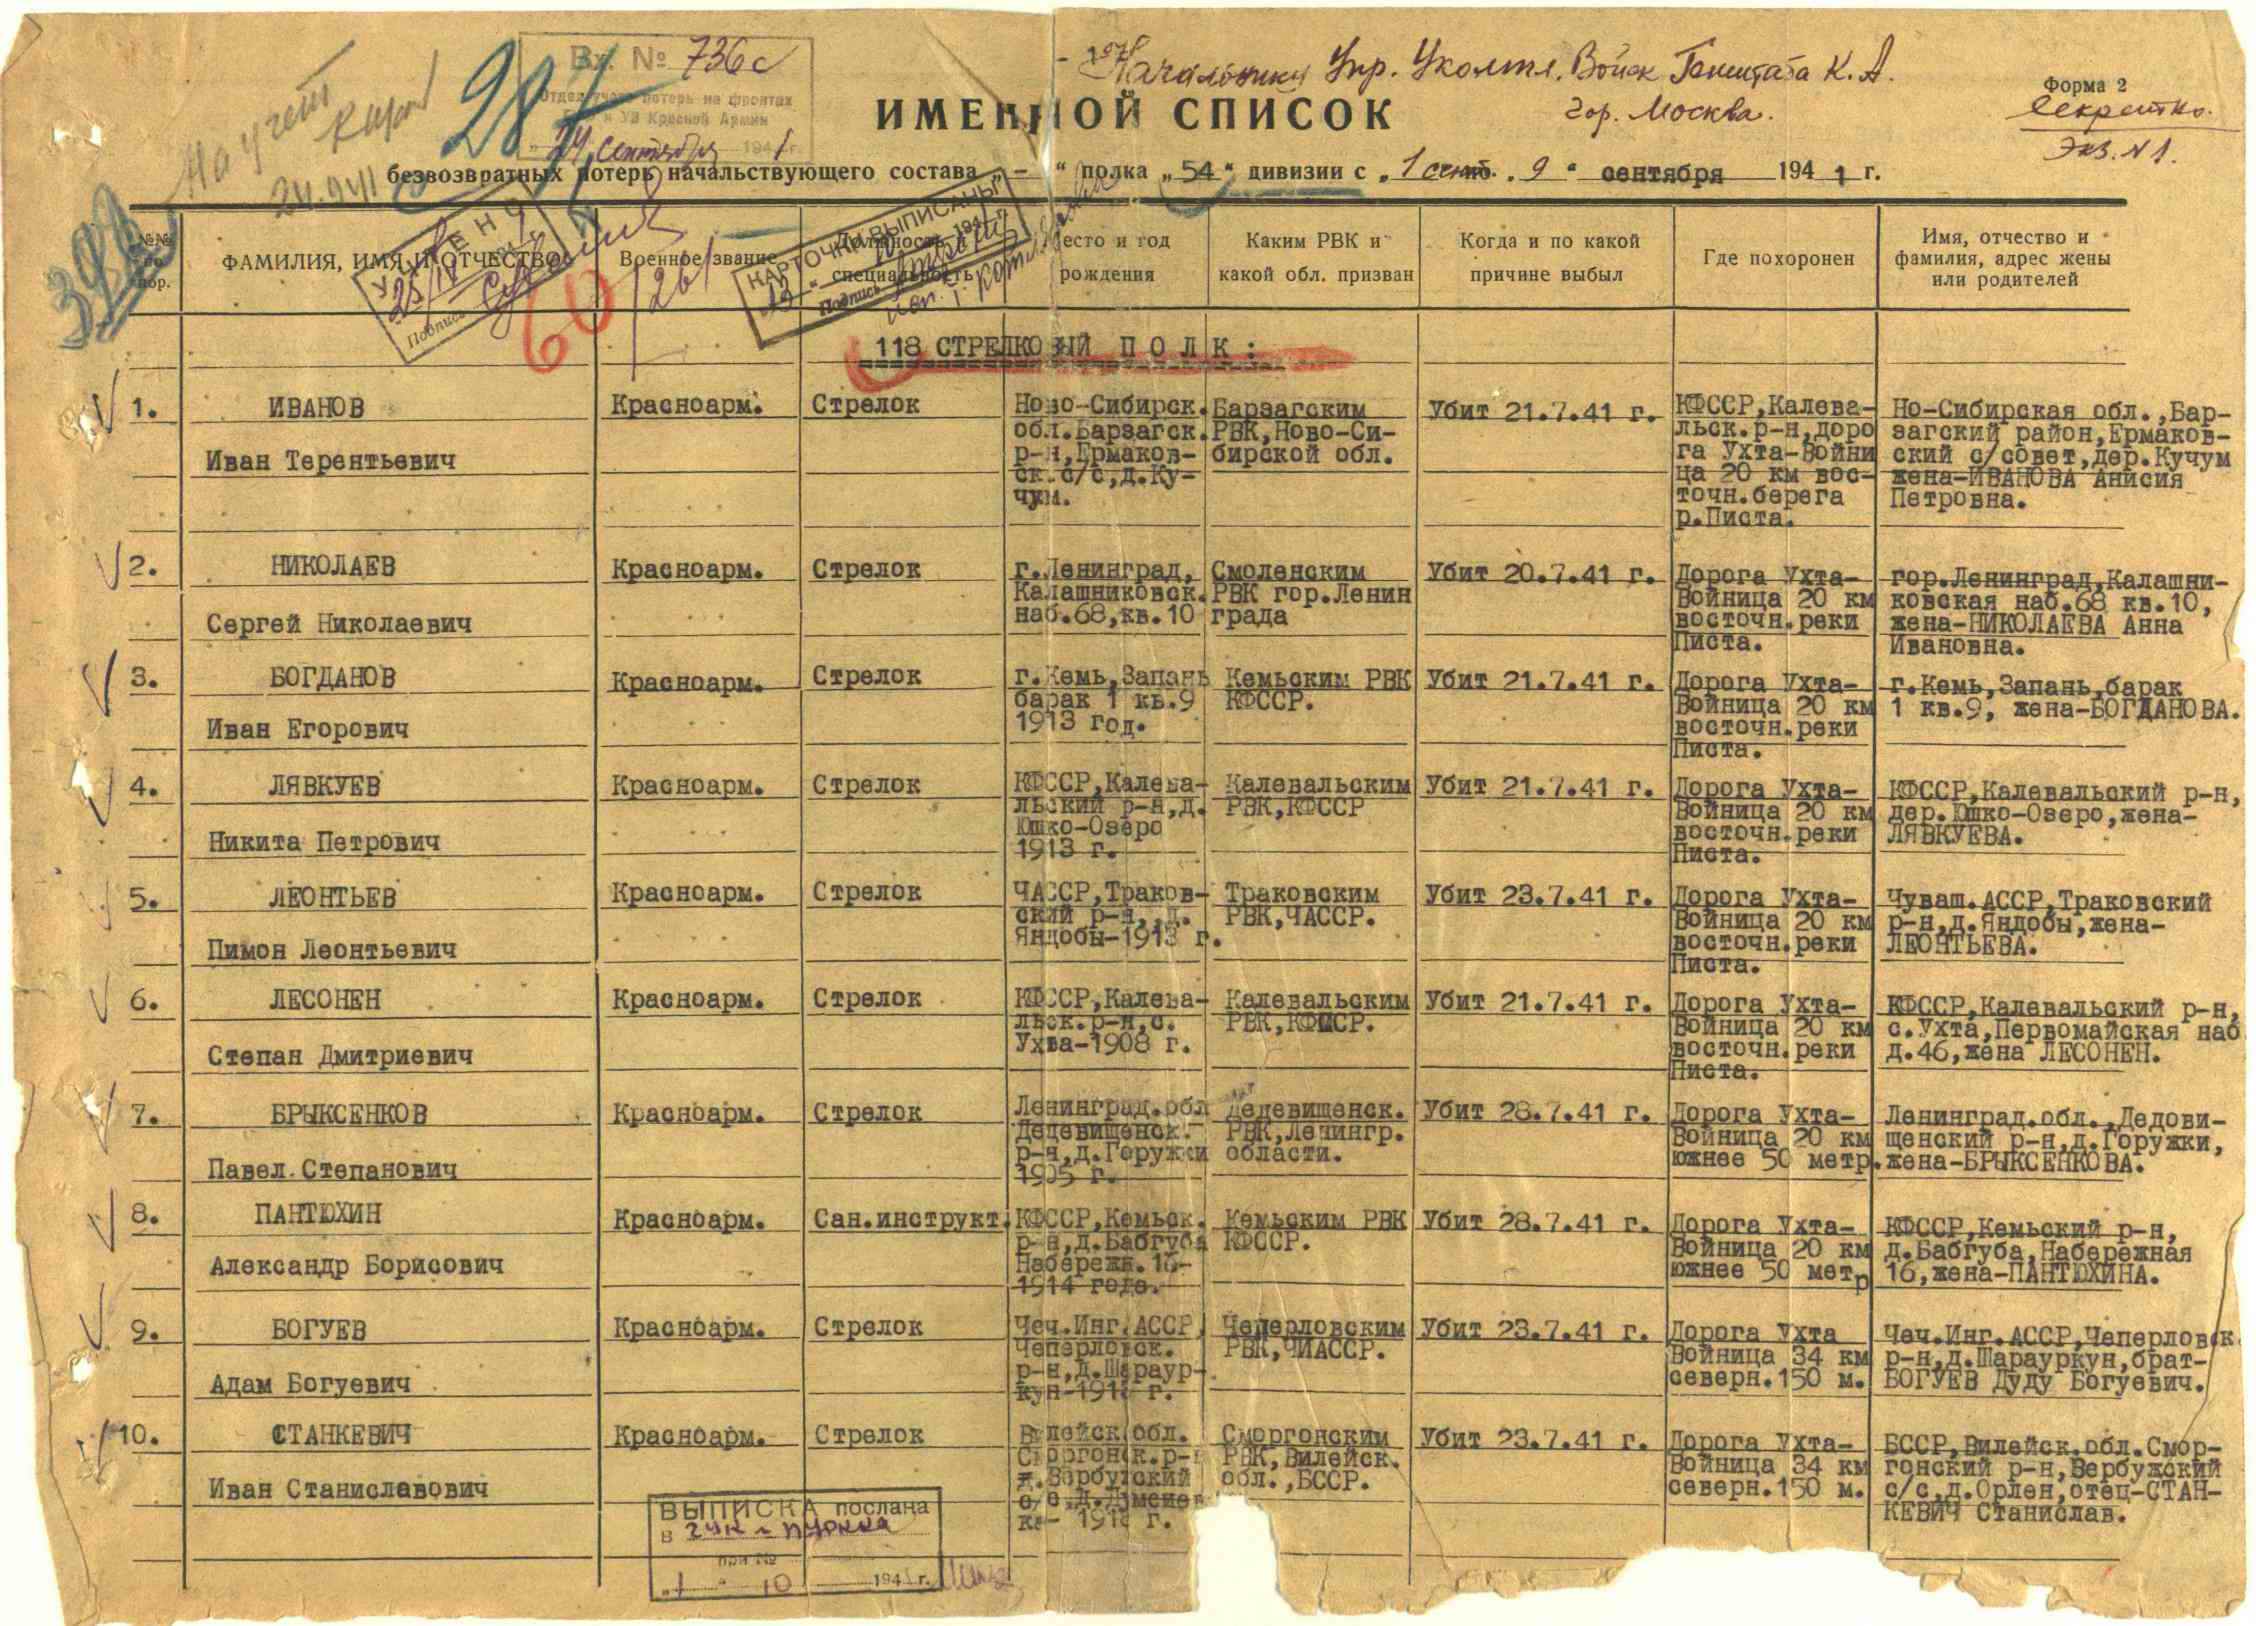 Вх. № 736с
Отдел учета потерь на фронтах
УВ Красной Армии
24 сентября 1941 г.
На учет
24.9.41
28
Начальнику Упр. Укомпл. Войск Генштаба К.А.
гор. Москва.
Форма 2
Секретно.
Экз. № 1.
ИМЕННОЙ СПИСОК
безвозвратных потерь начальствующего состава „ - “ полка „54“ дивизии с „1 сент. 9“ сентября 1941 г.
УЧТЕНО
25/IX
Подпись
60
261
КАРТОЧКИ ВЫПИСАНЫ
Подпись
№№ по пор.
ФАМИЛИЯ, ИМЯ И ОТЧЕСТВО
Военное звание
Должность и специальность
Место и год рождения
Каким РВК и какой обл. призван
Когда и по какой причине выбыл
Где похоронен
Имя, отчество и фамилия, адрес жены или родителей
118 СТРЕЛКОВЫЙ ПОЛК:
1. ИВАНОВ
Иван Терентьевич
Красноарм.
Стрелок
Ново-Сибирск.
обл.Барзагск.
р-н,Ермаков-
ск.с/с,д.Ку-
чум.
Барзагским
РВК,Ново-Си-
бирской обл.
Убит 21.7.41 г.
КФССР,Калева-
льск.р-н,доро
га Ухта-Войни
ца 20 км вос-
точн.берега
р.Писта.
Но-Сибирская обл.,Бар-
загский район,Ермаков-
ский с/совет,дер.Кучум
жена-ИВАНОВА Анисия
Петровна.
2. НИКОЛАЕВ
Сергей Николаевич
Красноарм.
Стрелок
г.Ленинград,
Калашниковск.
наб.68,кв.10
Смоленским
РВК гор.Ленин
града
Убит 20.7.41 г.
Дорога Ухта-
Войница 20 км
восточн.реки
Писта.
гор.Ленинград,Калашни-
ковская наб.68 кв.10,
жена-НИКОЛАЕВА Анна
Ивановна.
3. БОГДАНОВ
Иван Егорович
Красноарм.
Стрелок
г.Кемь,Запань
барак 1 кв.9
1913 год.
Кемьским РВК
КФССР.
Убит 21.7.41 г.
Дорога Ухта-
Войница 20 км
восточн.реки
Писта.
г.Кемь,Запань,барак
1 кв.9, жена-БОГДАНОВА.
4. ЛЯВКУЕВ
Никита Петрович
Красноарм.
Стрелок
КФССР,Калева-
льский р-н,д.
Юшко-Озеро
1913 г.
Калевальским
РВК,КФССР
Убит 21.7.41 г.
Дорога Ухта-
Войница 20 км
восточн.реки
Писта.
КФССР,Калевальский р-н,
дер.Юшко-Озеро,жена-
ЛЯВКУЕВА.
5. ЛЕОНТЬЕВ
Пимон Леонтьевич
Красноарм.
Стрелок
ЧАССР,Траков-
ский р-н,.д.
Яндобы-1913 г.
Траковским
РВК,ЧАССР.
Убит 23.7.41 г.
Дорога Ухта-
Войница 20 км
восточн.реки
Писта.
Чуваш.АССР,Траковский
р-н,д.Яндобы,жена-
ЛЕОНТЬЕВА.
6. ЛЕСОНЕН
Степан Дмитриевич
Красноарм.
Стрелок
КФССР,Калева-
льск.р-н,с.
Ухта-1908 г.
Калевальским
РВК,КФССР.
Убит 21.7.41 г.
Дорога Ухта-
Войница 20 км
восточн.реки
Писта.
КФССР,Калевальский р-н,
с.Ухта,Первомайская наб
д.46,жена ЛЕСОНЕН.
7. БРЫКСЕНКОВ
Павел.Степанович
Красноарм.
Стрелок
Ленинград.обл
Дедевищенск.
р-н,д.Горужки
1905 г.
Дедевищенск.
РВК,Ленингр.
области.
Убит 28.7.41 г.
Дорога Ухта-
Войница 20 км
южнее 50 метр.
Ленинград.обл.,Дедови-
щенский р-н,д.Горужки,
жена-БРЫКСЕНКОВА.
8. ПАНТЮХИН
Александр Борисович
Красноарм.
Сан.инструкт.
КФССР,Кемьск.
р-н,д.Бабгуба
Набережн.16-
1914 года.
Кемьским РВК
КФССР.
Убит 28.7.41 г.
Дорога Ухта-
Войница 20 км
южнее 50 метр
КФССР,Кемьский р-н,
д.Бабгуба,Набережная
16,жена-ПАНТЮХИНА.
9. БОГУЕВ
Адам Богуевич
Красноарм.
Стрелок
Чеч.Инг.АССР,
Чеперловск.
р-н,д.Шараур-
кун-191 г.
Чеперловским
РВК,ЧИАССР.
Убит 23.7.41 г.
Дорога Ухта
Войница 34 км
северн.150 м.
Чеч.Инг.АССР,Чеперловск.
р-н,д.Шарауркун,брат-
БОГУЕВ Дуду Богуевич.
10. СТАНКЕВИЧ
Иван Станиславович
Красноарм.
Стрелок
Вилейск.обл.
Сморгонск.р-н
д.Вербужский
с/с,д.
191 г.
Сморгонским
РВК,Вилейск.
обл.,БССР.
Убит 23.7.41 г.
Дорога Ухта-
Войница 34 км
северн.150 м.
БССР,Вилейск.обл.Смор-
гонский р-н,Вербужский
с/с,д.Орлен,отец-СТАН-
КЕВИЧ Станислав.
ВЫПИСКА послана
в ГУК и ПУРККА
при №
„1“ 10 194 г.